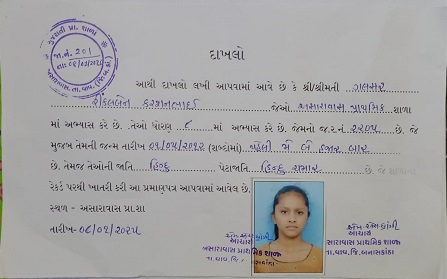 ગુજરાતી પ્રા. શાળા
જા.નં. 201
દાખલો
આથી દાખલો લખી આપવામાં આવે છે કે શ્રી/શ્રીમતી ગલસર
કરશનભાઈ જેઓ અસારાવાસ પ્રાથમિક શાળા
માં અભ્યાસ કરે છે. તેઓ ધોરણ ૮ માં અભ્યાસ કરે છે. જેમનો જ.ર.નં. ૨૨૦૫ છે. જે
મુજબ તેમની જન્મ તારીખ ૦૧/૦૫/૨૦૧૨ (શબ્દોમાં) પહેલી મે બે હજાર બાર
છે. તેમજ તેઓની જાતિ હિન્દુ પેટાજાતિ હિન્દુ ચમાર છે.
રેકર્ડ પરથી ખાતરી કરી આ પ્રમાણપત્ર આપવામાં આવેલ છે.
સ્થળ - અસારાવાસ પ્રા.શા
તારીખ-
આચાર્ય
અસારાવાસ પ્રાથમિક શાળા
તા.વાવ, જિ.
આચાર્ય
અસારાવાસ પ્રાથમિક શાળા
તા.વાવ, જિ.બનાસકાંઠા